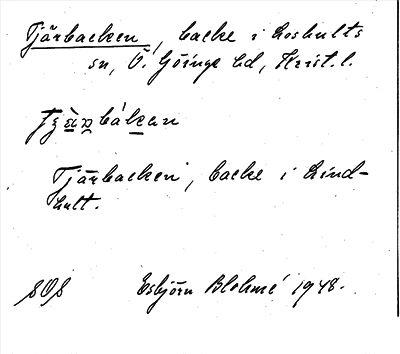 Tjärbacken, backe i Loshults
sn, Ö. Göinge hd, Krist. l.
Tjärbacken, backe i Lind-
hult.
SOS Esbjörn Blohmé 1948.